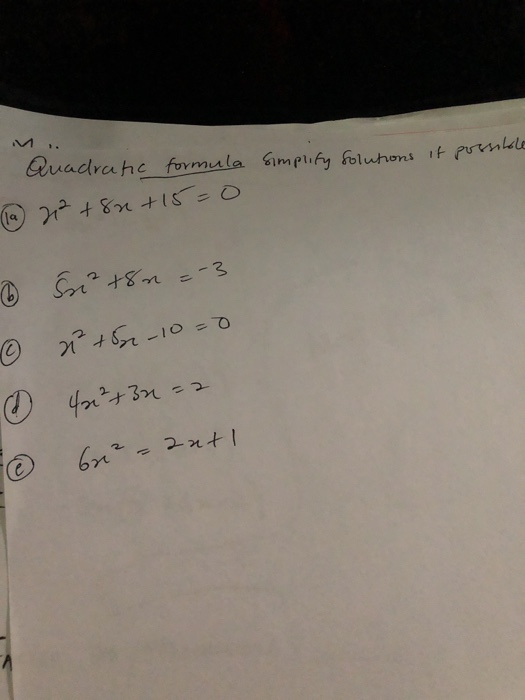 Quadratic formula simplify solutions if possible
1a x² + 8x + 15 = 0
b 5x² + 8x = -3
c x² + 5x - 10 = 0
d 4x² + 3x = 2
e 6x² = 2x + 1